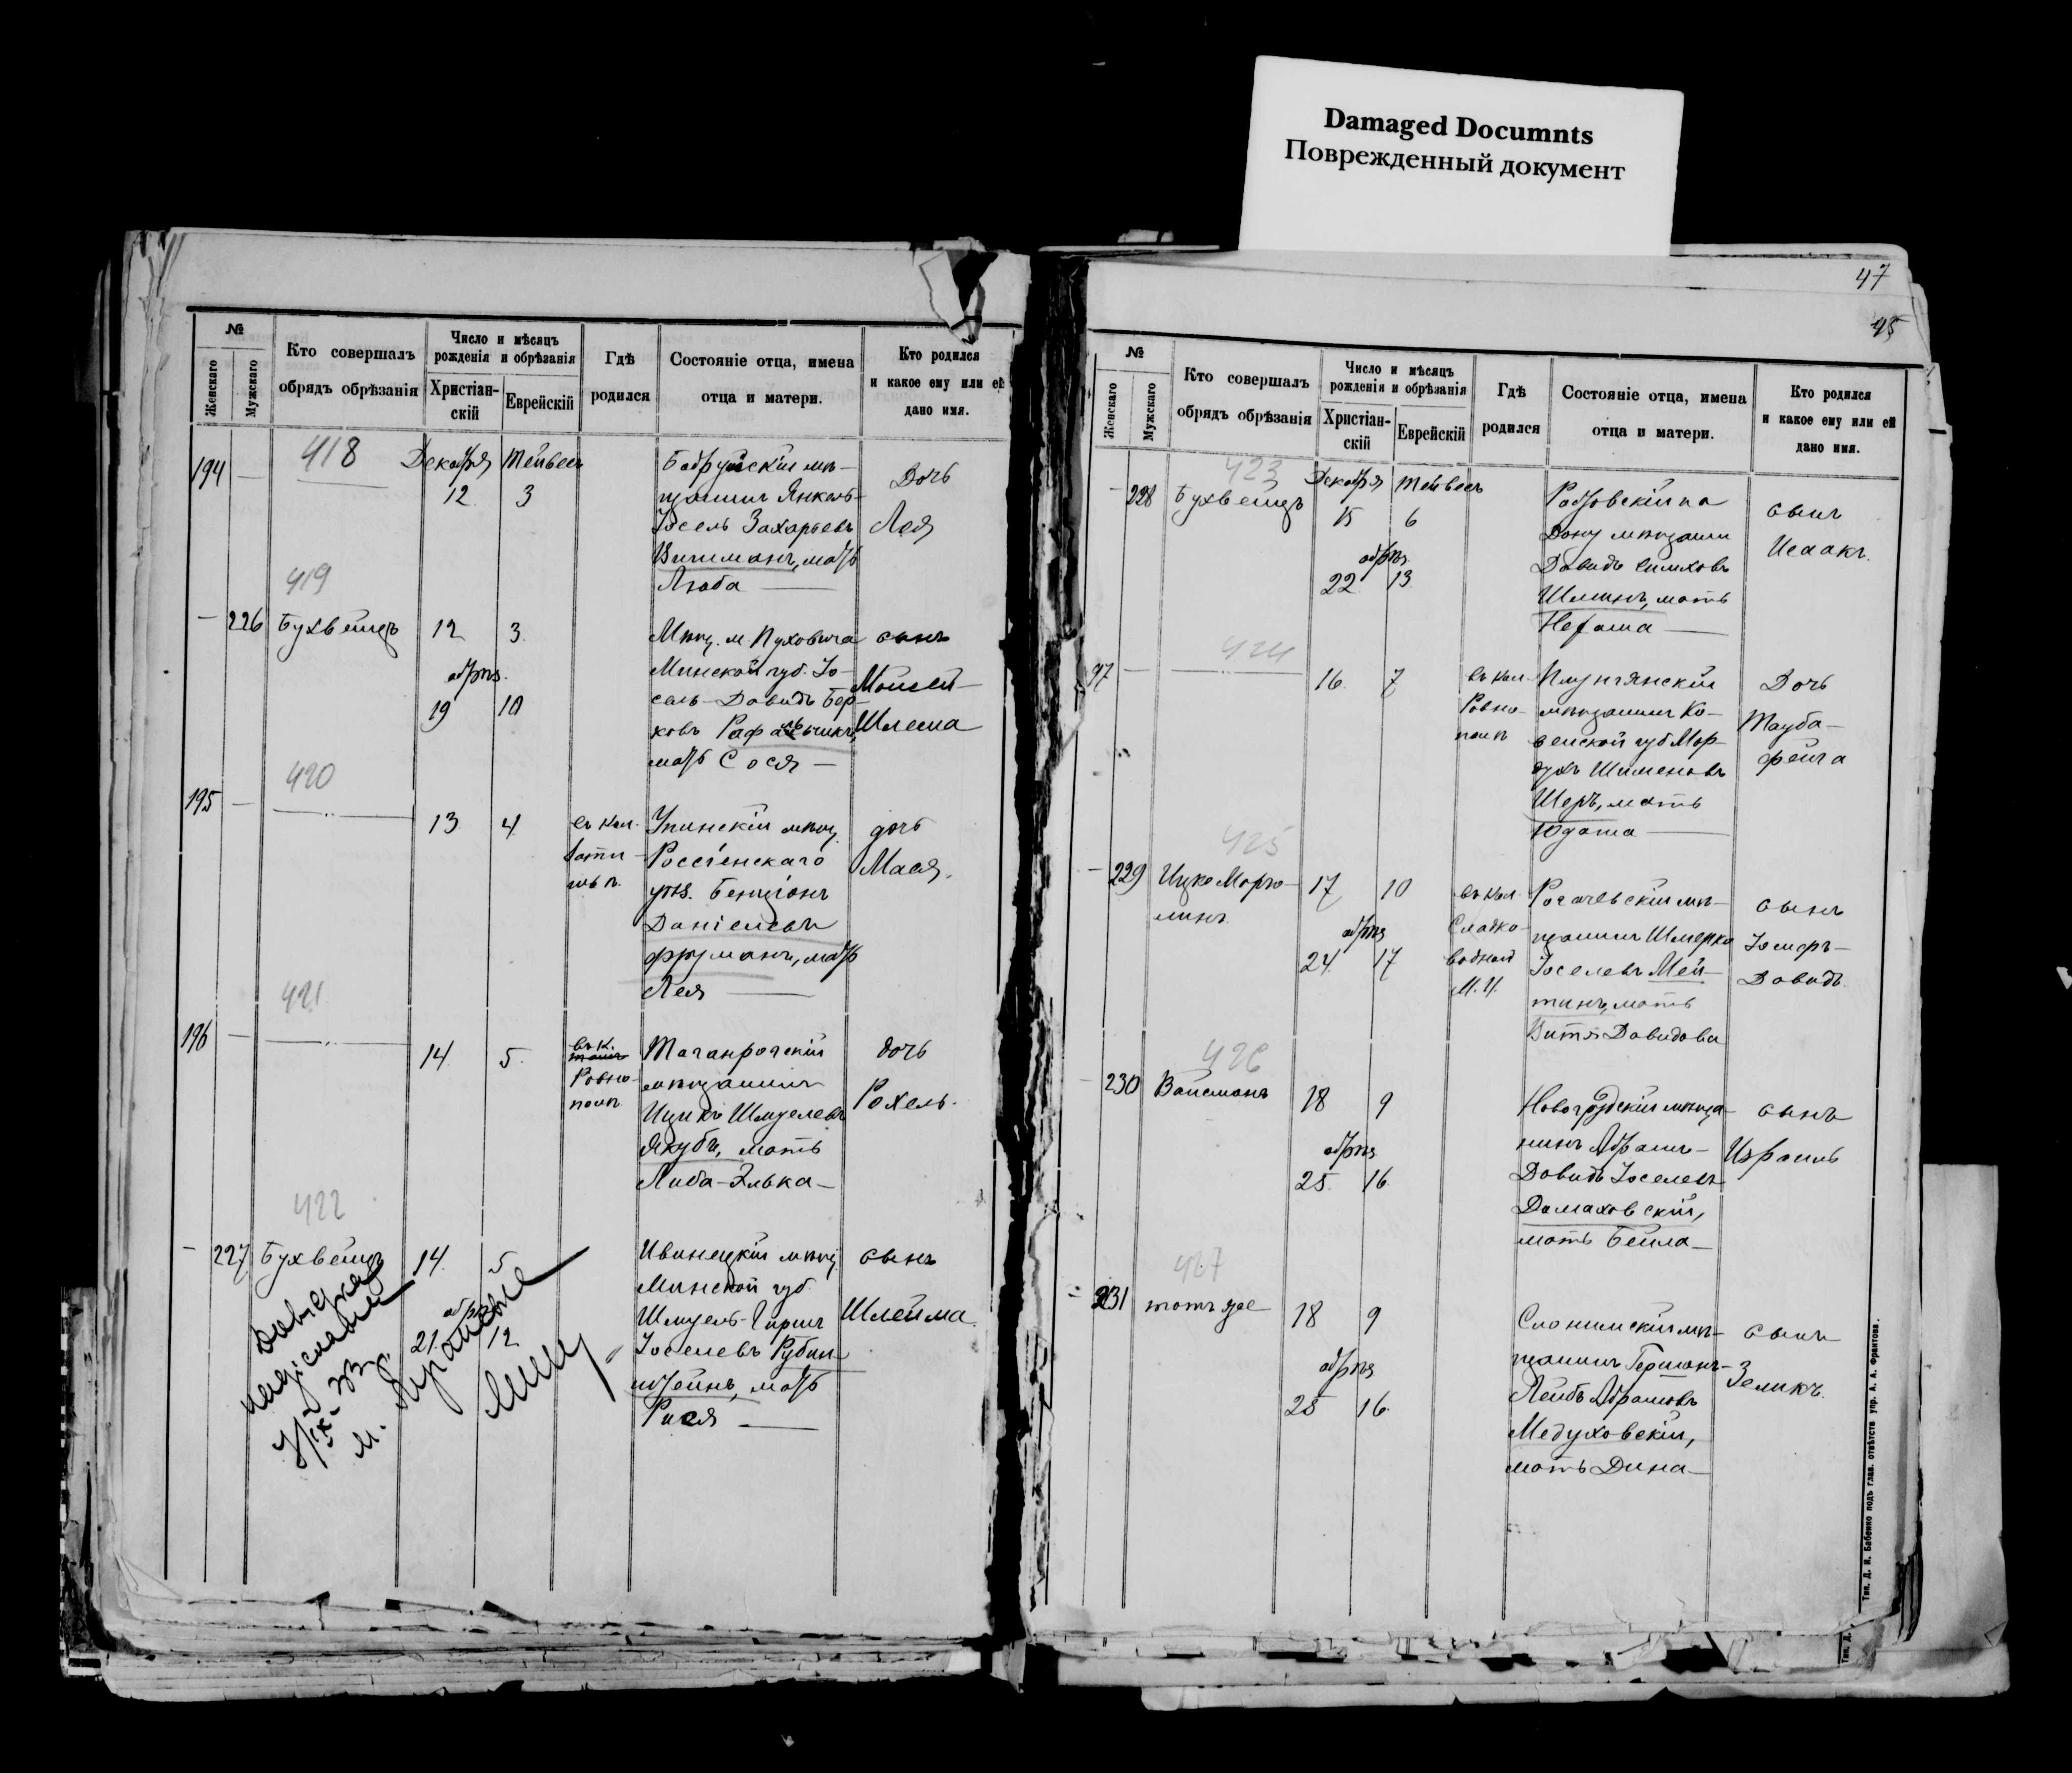 Damaged Documnts
Поврежденный документ
№
Женскаго
Мужскаго
Кто совершалъ
обрядъ обрѣзанія
Число и мѣсяцъ
рожденія и обрѣзанія
Христіан-
скій
Еврейскій
Гдѣ
родился
Состояніе отца, имена
отца и матери.
Кто родился
и какое ему или ей
дано имя.
418
194 —
Декабря Тейвесъ
12 3
Бобруйскій мѣ-
щанинъ Янкель-
Іосель Захарьевъ
мать
Люба —
Дочь
Лея
419
— 226 Бухвейцъ
12 3.
обрѣз.
19 10
Мѣщ. м. Пуховича
Минской губ. Іо-
сель-Довидъ Бер-
ковъ
мать Сося —
сынъ
Мойсей-
Шлема
420
195 —
13 4
въ кол.
Упинскій мѣщ.
Россіенскаго
уѣз. Бенціонъ
Даніелевъ
Фрруманъ, мать
Лея —
дочь
Мася.
421
196 —
14. 5.
въ к.
Ровно-
поль
Таганрогскій
мѣщанинъ
Ицикъ Шмуелевъ
Якубъ, мать
Либа-Элька —
дочь
Рохель.
422
— 227 Бухвейцъ
14. 5
обрѣз
21. 12
Ивенецкій мѣщ.
Минской губ.
Шмуель-Гиршъ
Іоселевъ Рубин-
штейнъ, мать
Рися —
сынъ
Шлейма.
47
45
№
Женскаго
Мужскаго
Кто совершалъ
обрядъ обрѣзанія
Число и мѣсяцъ
рожденія и обрѣзанія
Христіан-
скій
Еврейскій
Гдѣ
родился
Состояніе отца, имена
отца и матери.
Кто родился
и какое ему или ей
дано имя.
423
— 228 Бухвейцъ
Декабря Тейвесъ
15 6
обрѣз
22 13
Ростовскій на
Дону мѣщанин
Довидъ Симховъ
мать
Нехама —
сынъ
Исаакъ.
424
97 —
16. 7
въ кол.
Ровно-
поль
Плунгянскій
мѣщанинъ Ко-
венской губ Мор-
духъ Шименовъ
Шеръ, мать
Юдаша —
Дочь
Тауба-
Фейга
425
— 229 Ицко Марго-
линъ.
17 10
обрѣз
24. 17
въ кол.
Сладко-
водной
Рогачевскій мѣ-
щанинъ Шмерко
Іоселевъ Мей-
тинъ, мать
Витя Давидова
сынъ
Іосифъ-
Довидъ.
426
230 Вайсманъ
18 9
обрѣз
25. 16.
Новогрудскій мѣща-
нинъ Абрамъ-
Довидъ Іоселевъ
Домаховскій,
мать Бейла —
сынъ
Израиль
427
231 тотъ же
18 9
обрѣз
25 16.
Слонимскій мѣ-
щанинъ Германъ-
Лейбъ Абрамовъ
Медуховскій,
мать Дина —
сынъ
Зеликъ.
Тип. Д. И. Бабенко подъ глав. отвѣтств упр. А. А. Франтова.
Тип. Д.